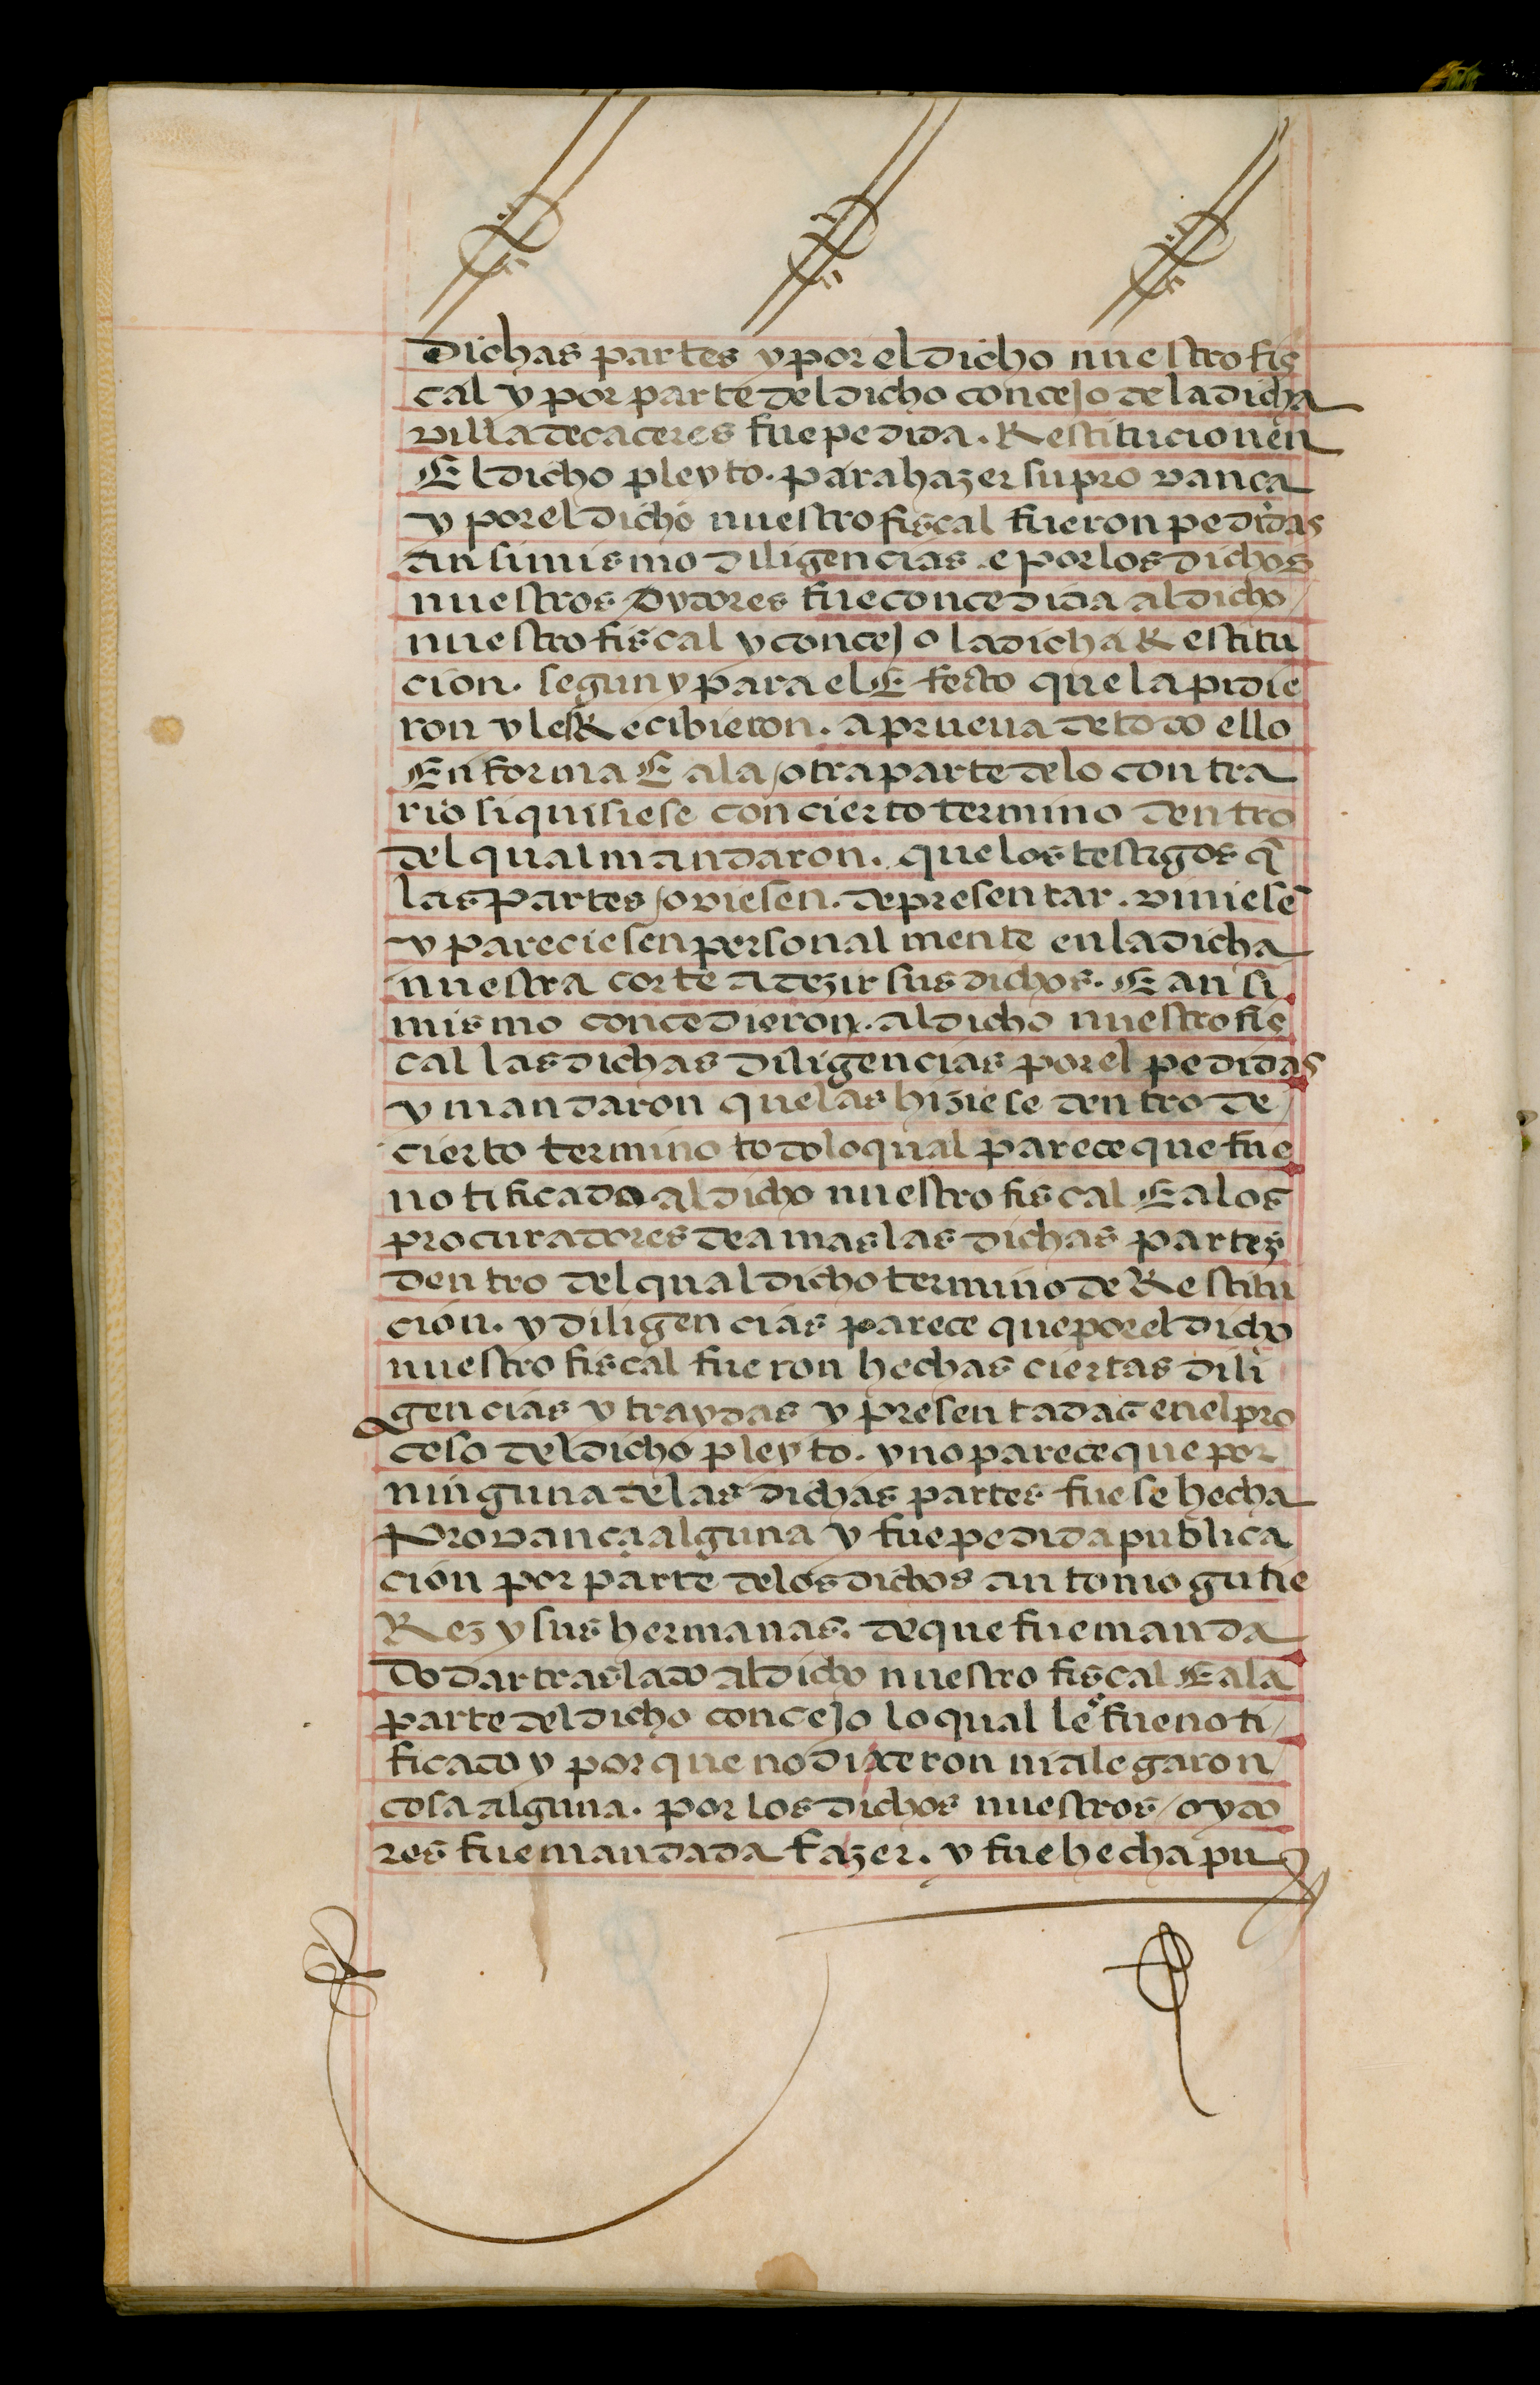 Dichas partes y por el dicho nuestro fis
cal y por parte del dicho concejo de la dicha
villa de caceres fue pedida. Restitucion en
El dicho pleyto. para hazer su provança
y por el dicho nuestro fiscal fueron pedidas
ansimismo diligencias e por los dichos
nuestros Oydores fue concedida al dicho
nuestro fiscal y concejo la dicha Restitu
cion. segun y para el Efecto que la pidie
ron y les Recibieron. a prueua de todo ello
En forma E a la otra parte de lo contra
rio si quisiese con cierto termino dentro
del qual mandaron. que los testigos q̃
las partes oviesen. de presentar. viniesẽ
y pareciesen personalmente en la dicha
nuestra corte a dezir sus dichos. E ansi
mismo concedieron. al dicho nuestro fis
cal las dichas diligencias por el pedidas
y mandaron que las hiziese dentro de
cierto termino todo lo qual parece que fue
notificado al dicho nuestro fiscal E a los
procuradores de amas las dichas partes
dentro del qual dicho termino de Restitu
cion. y diligencias parece que por el dicho
nuestro fiscal fueron hechas ciertas dili
gencias y traydas y presentadas en el pro
ceso del dicho pleyto. y no parece que por
ninguna de las dichas partes fuese hecha
Provança alguna y fue pedida publica
cion por parte de los dichos antonio gutie
Rez y sus hermanas. de que fue manda
do dar traslado al dicho nuestro fiscal E a la
parte del dicho concejo lo qual le fue noti
ficado y por que no dixeron ni alegaron
cosa alguna. por los dichos nuestros oydo
res fue mandada fazer. y fue hecha pu